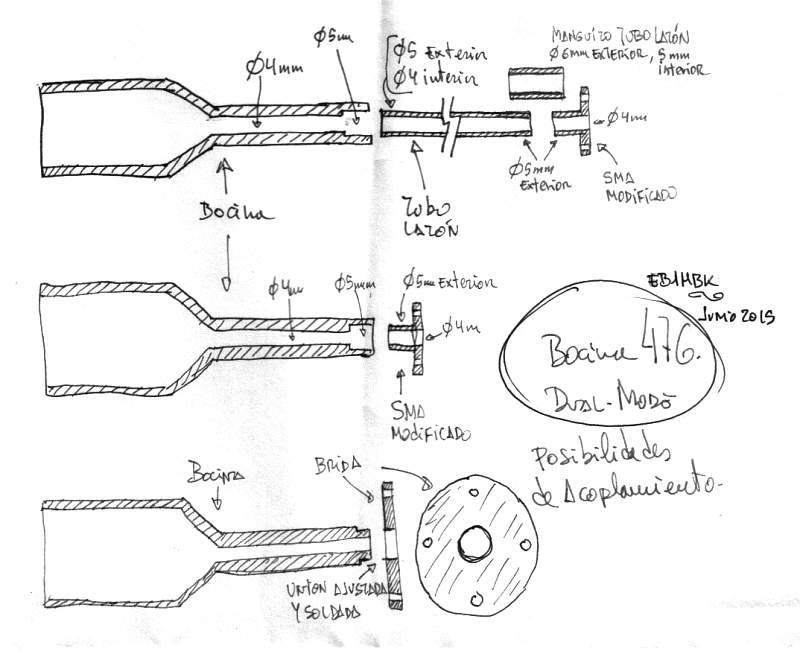 Ø4mm
Ø5mm
Ø5 Exterior
Ø4 interior
MANGUITO TUBO LATÓN
Ø6mm EXTERIOR, 5mm
interior
Ø4m
Ø5mm
EXTERIOR
SMA
MODIFICADO
Bocina
TUBO
LATÓN
Ø4m
Ø5mm
Ø5mm Exterior
Ø4m
SMA
MODIFICADO
EB1HBK
Junio 2015
Bocina 476.
DUAL-MODO
Posibilidades
de Acoplamiento-
Bocina
BRIDA
UNION AJUSTADA
Y SOLDADA